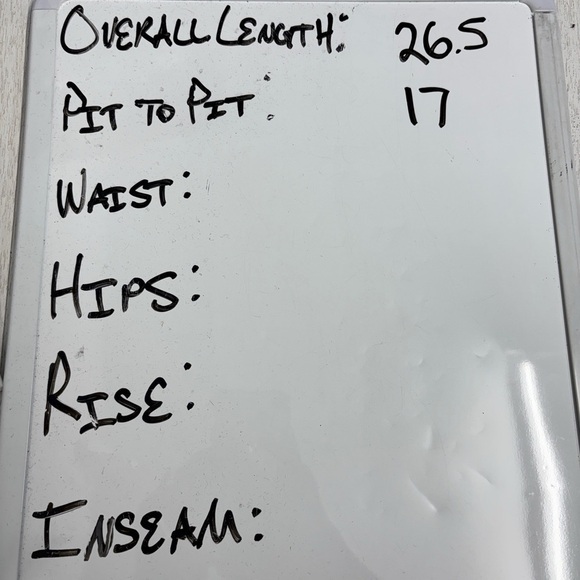 OVERALL LENGTH: 26.5
PIT TO PIT: 17
WAIST:
HIPS:
RISE:
INSEAM: